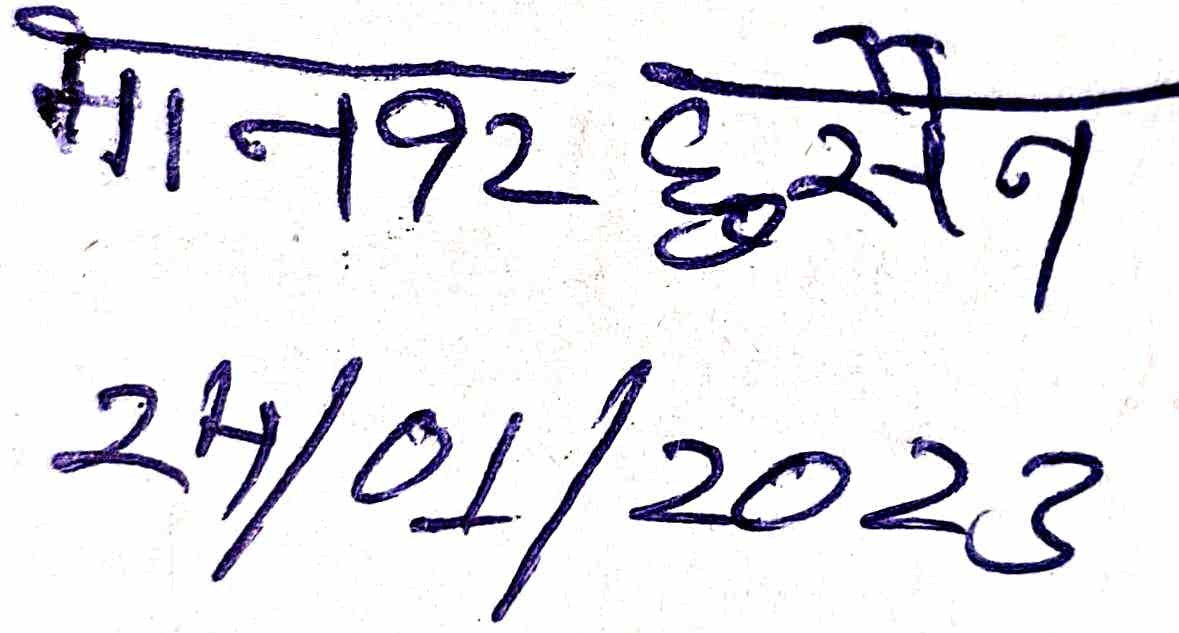 मानवर हुसैन
24/01/2023